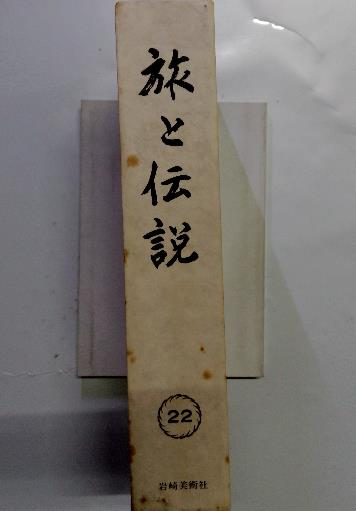 旅と伝説
22
岩崎美術社